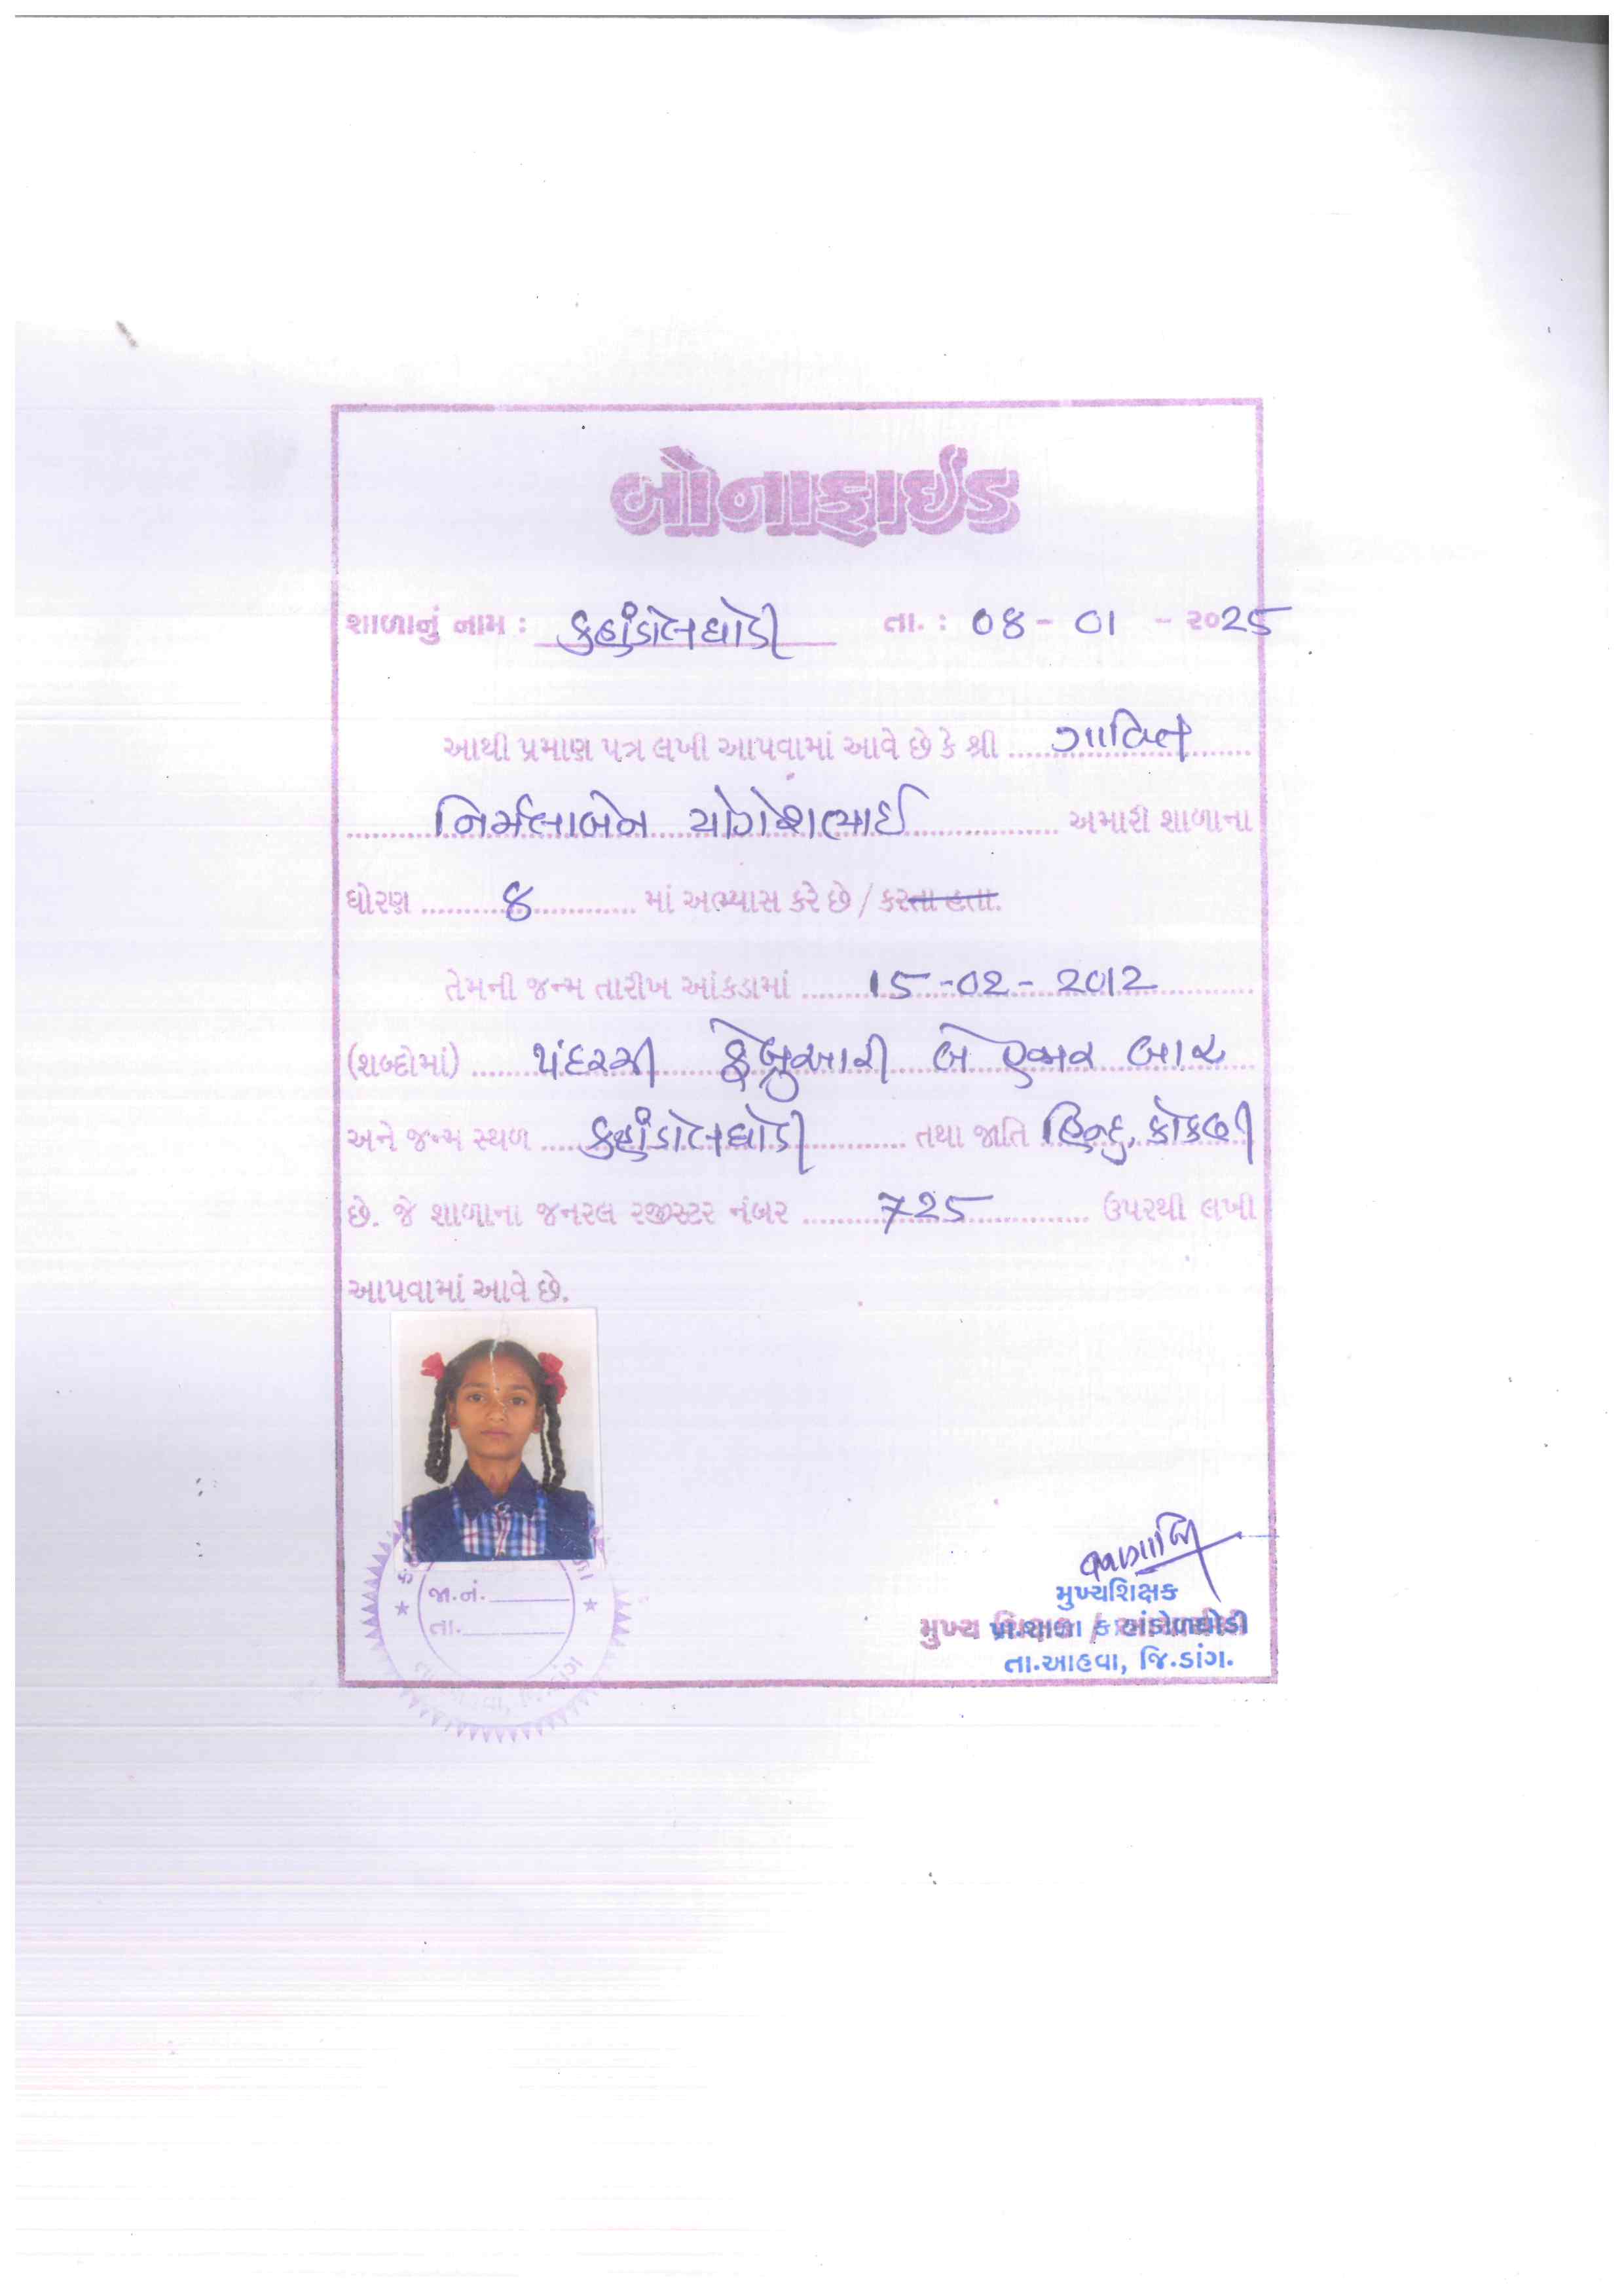 બોનાફાઈડ
શાળાનું નામ : કહાંડોલઘોડી તા. : ૦૪- ૦1 - ૨૦25
આથી પ્રમાણ પત્ર લખી આપવામાં આવે છે કે શ્રી ગાવિત
નિર્મલાબેન યોગેશભાઈ અમારી શાળાના
ધોરણ ૪ માં અભ્યાસ કરે છે / કરતા હતા.
તેમની જન્મ તારીખ આંકડામાં 15-02-2012
(શબ્દોમાં) પંદરમી ફેબ્રુઆરી બે હજાર બાર
અને જન્મ સ્થળ કહાંડોલઘોડી તથા જાતિ હિન્દુ, કોકણી
છે. જે શાળાના જનરલ રજીસ્ટર નંબર 725 ઉપરથી લખી
આપવામાં આવે છે.
જા.નં.
તા.
મુખ્યશિક્ષક
મુખ્ય
તા.આહવા, જિ.ડાંગ.